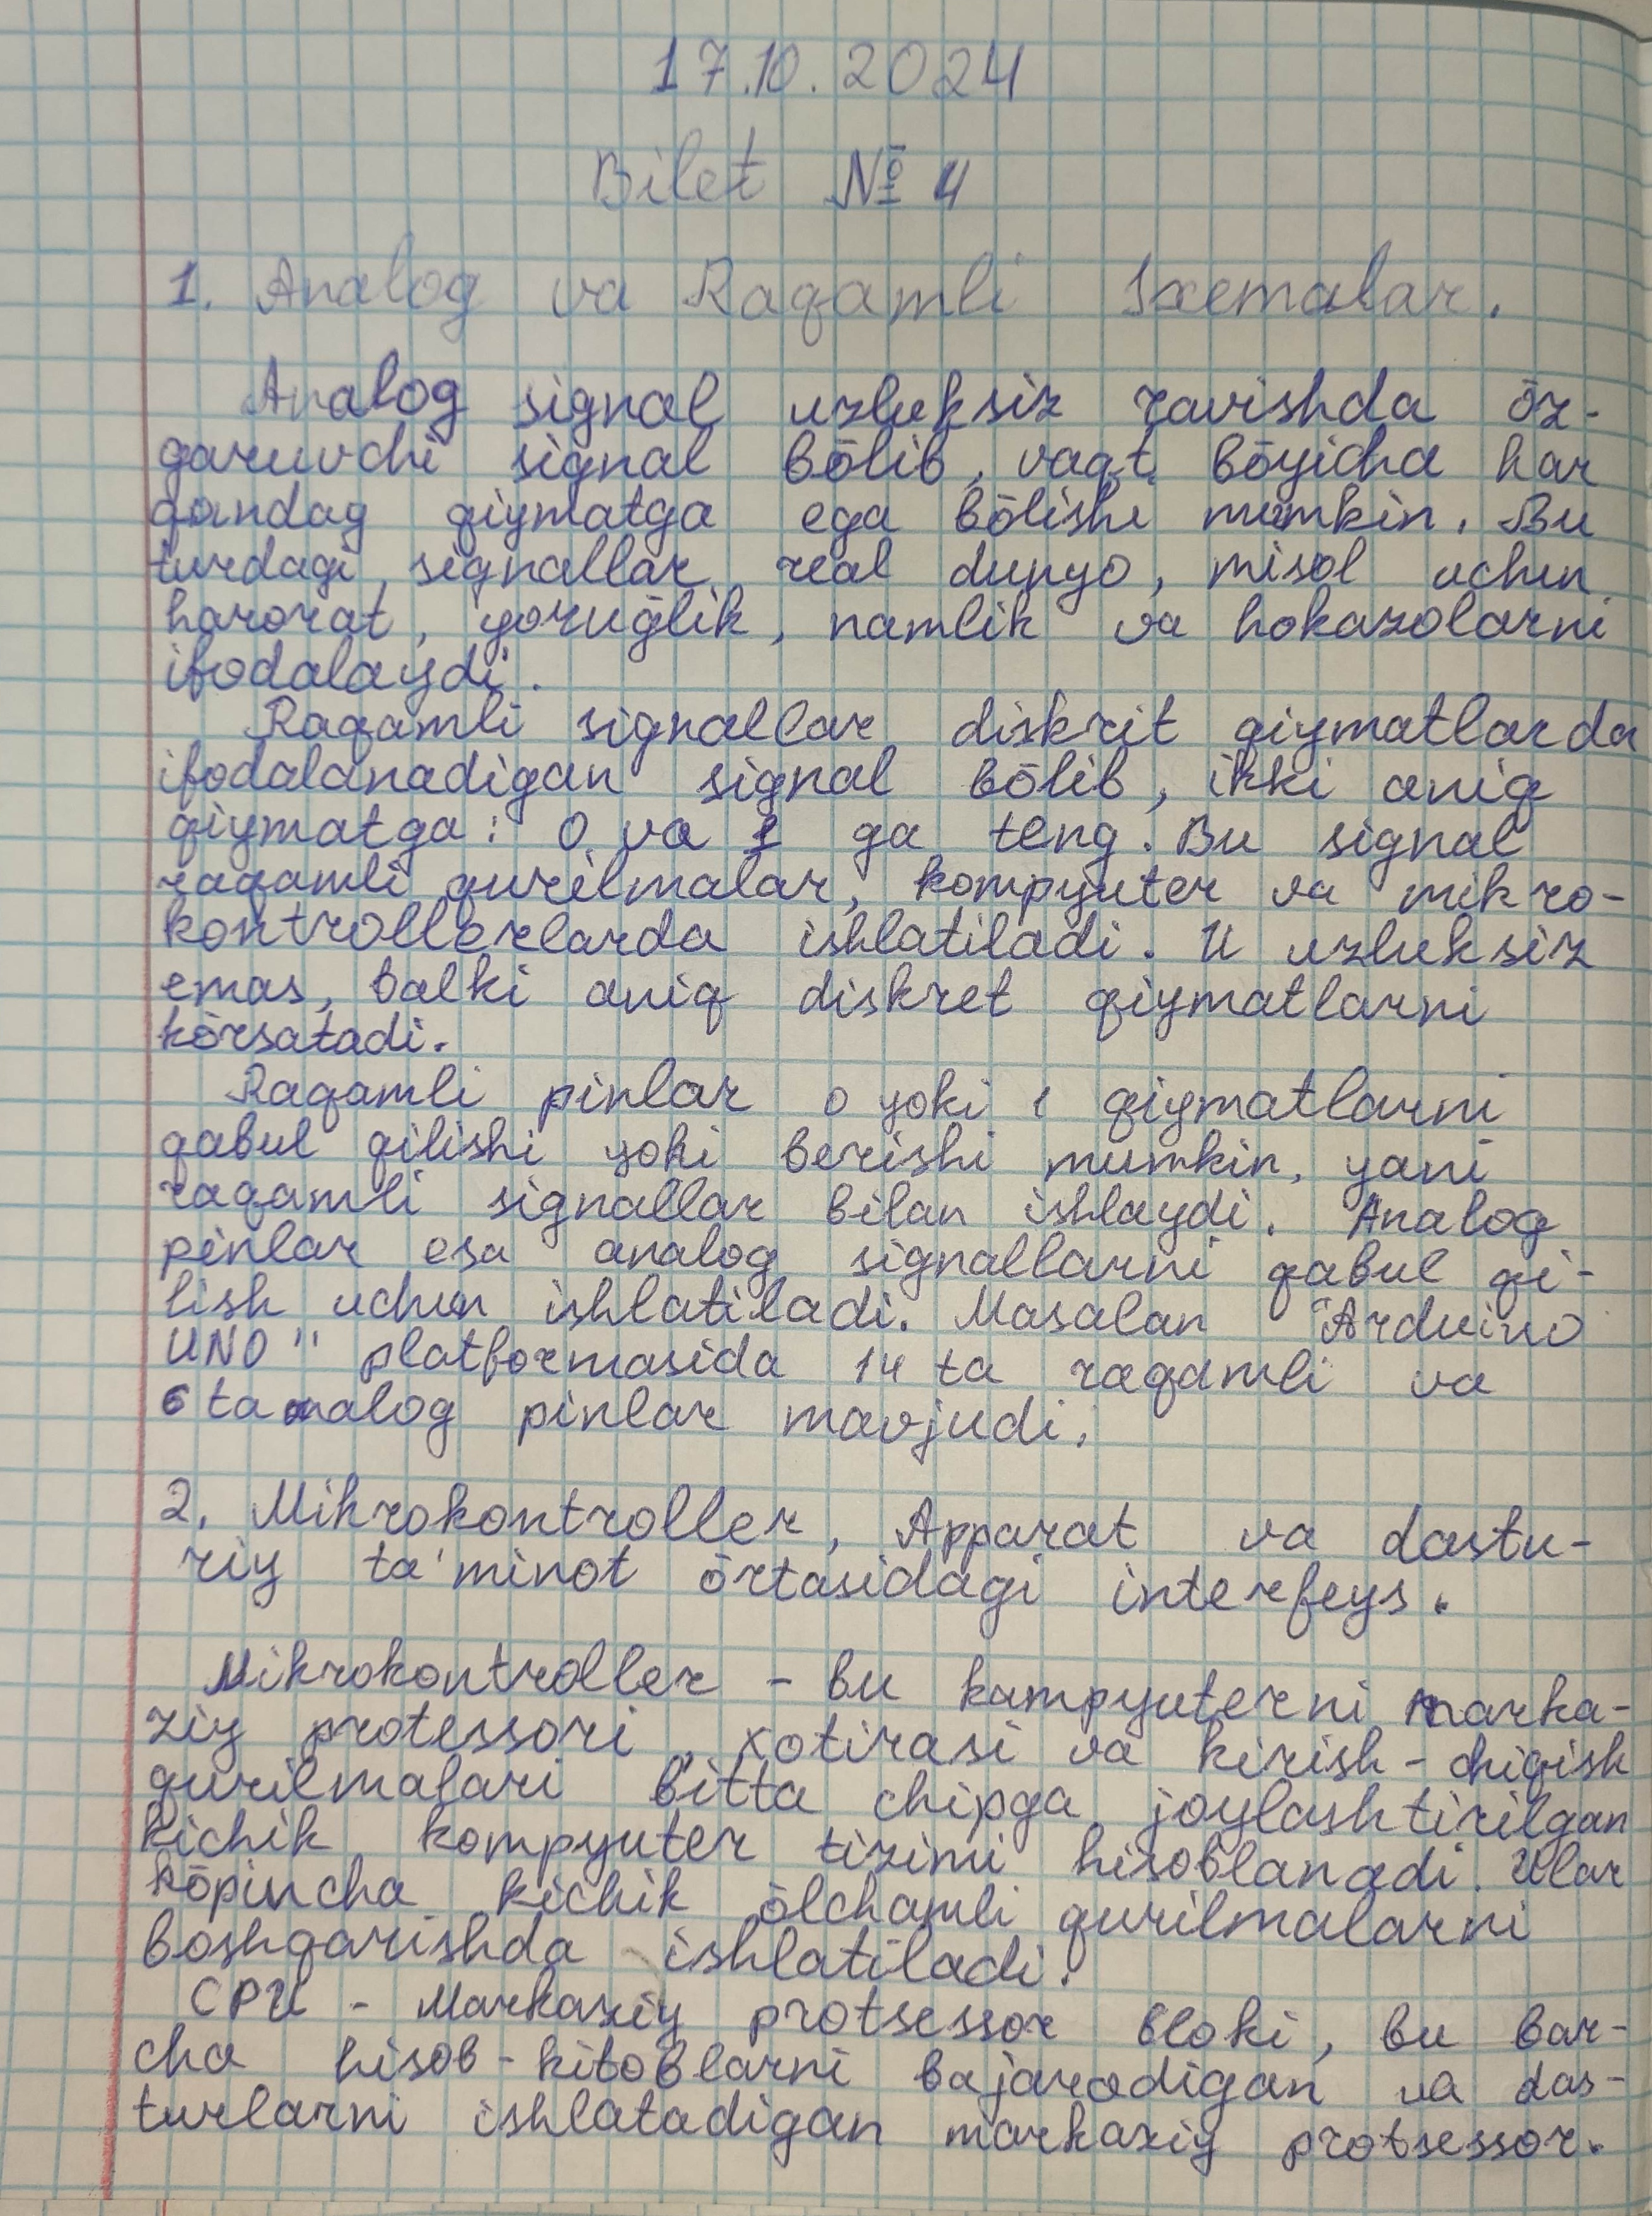 17.10.2024
Bilet № 4
1. Analog va Raqamli sxemalar.
Analog signal uzluksiz ravishda ōz-
garuvchi signal bōlib, vaqt bōyicha har
qanday qiymatga ega bōlishi mumkin. Bu
turdagi signallar real dunyo, misol uchun
harorat, yoruḡlik, namlik va hokazolarni
ifodalaydi.
Raqamli signallar diskrit qiymatlarda
ifodalanadigan signal bōlib, ikki aniq
qiymatga: 0 va 1 ga teng. Bu signal
raqamli qurilmalar, kompyuter va mikro-
kontrollerlarda ishlatiladi. U uzluksiz
emas, balki aniq diskret qiymatlarni
kōrsatadi.
Raqamli pinlar 0 yoki 1 qiymatlarni
qabul qilishi yoki berishi mumkin, yani
raqamli signallar bilan ishlaydi. Analog
pinlar esa analog signallarni qabul qi-
lish uchun ishlatiladi. Masalan "Arduino
UNO" platformasida 14 ta raqamli va
6 ta analog pinlar mavjudi.
2. Mikrokontroller, Apparat va dastu-
riy ta'minot ōrtasidagi interfeys.
Mikrokontroller - bu kampyuterni marka-
ziy protessori, xotirasi va kirish-chiqish
qurilmalari bitta chipga joylashtirilgan
kichik kompyuter tizimi hisoblanadi. Ular
kōpincha kichik ōlchamli qurilmalarni
boshqarishda ishlatiladi.
CPU - Markaziy protsessor bloki, bu bar-
cha hisob-kitoblarni bajaradigan va das-
turlarni ishlatadigan markaziy protsessor.